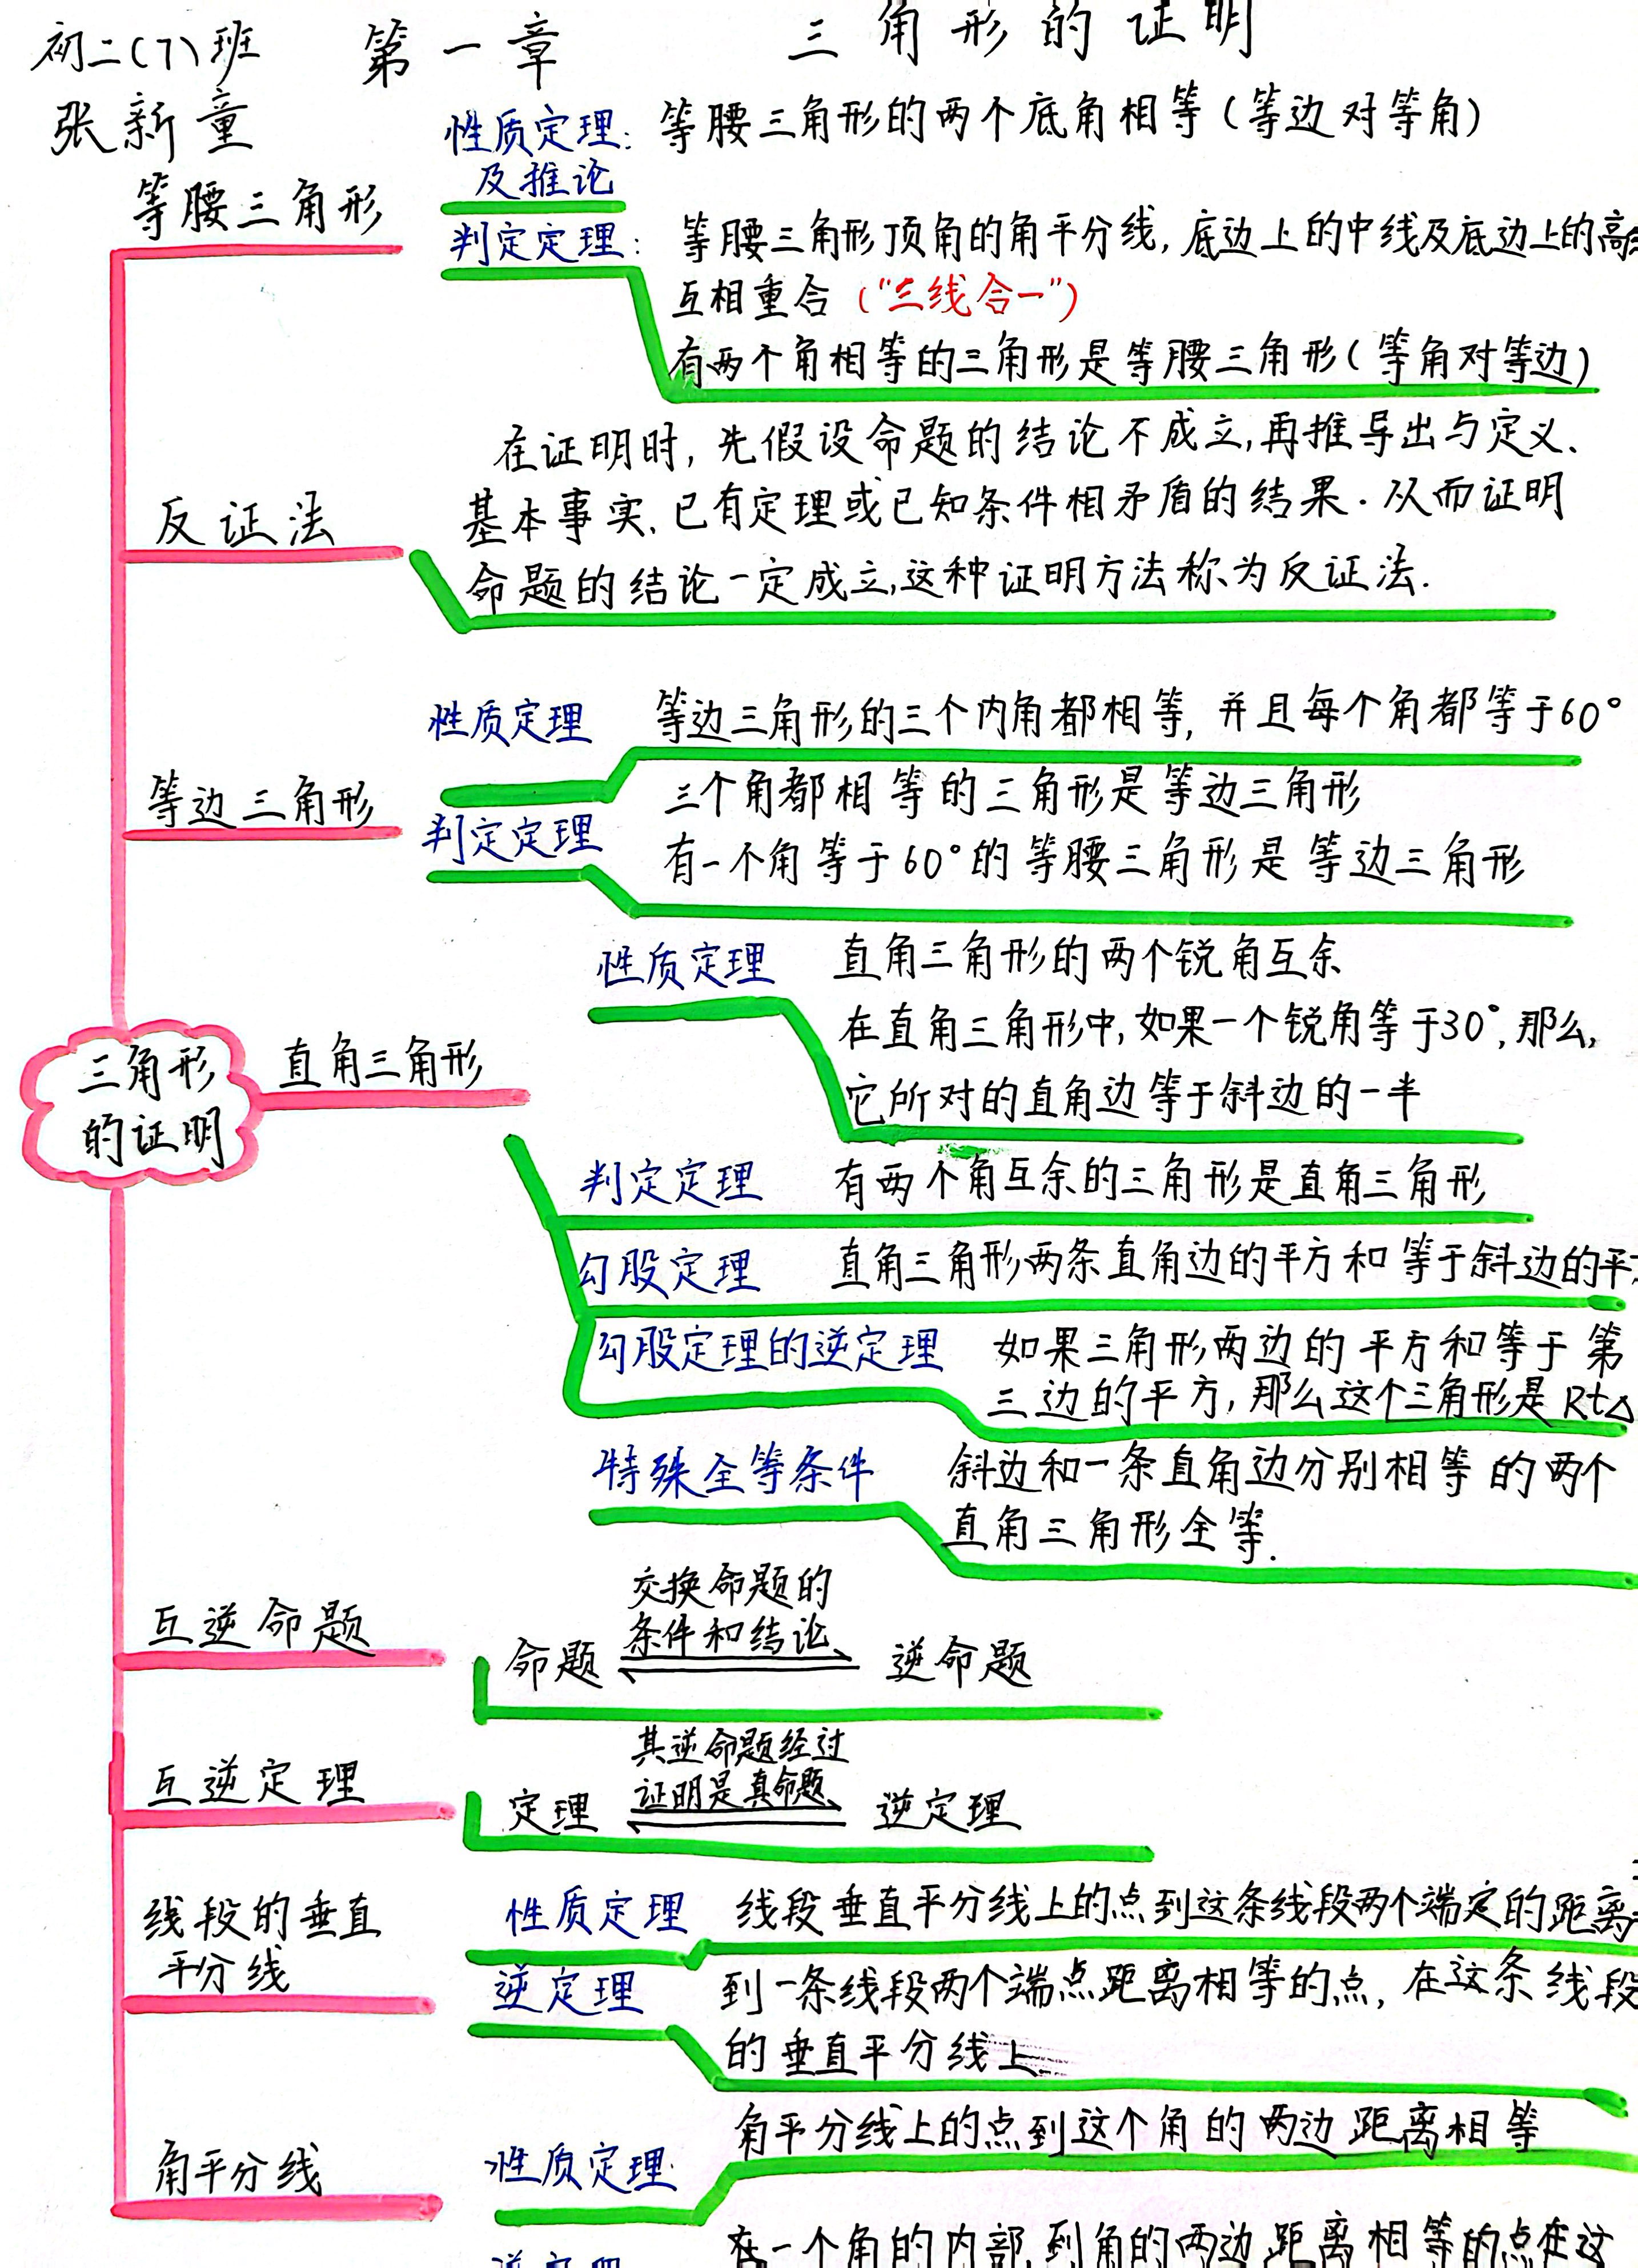 初二(7)班 第一章 三角形的证明
张新童
性质定理: 等腰三角形的两个底角相等(等边对等角)
及推论
等腰三角形
判定定理: 等腰三角形顶角的角平分线,底边上的中线及底边上的高
互相重合("三线合一")
有两个角相等的三角形是等腰三角形(等角对等边)
在证明时,先假设命题的结论不成立,再推导出与定义、
反证法 基本事实、已有定理或已知条件相矛盾的结果.从而证明
命题的结论一定成立,这种证明方法称为反证法.
性质定理 等边三角形的三个内角都相等,并且每个角都等于60°
等边三角形 三个角都相等的三角形是等边三角形
判定定理 有一个角等于60°的等腰三角形是等边三角形
性质定理 直角三角形的两个锐角互余
在直角三角形中,如果一个锐角等于30°,那么,
它所对的直角边等于斜边的一半
三角形 直角三角形
的证明
判定定理 有两个角互余的三角形是直角三角形
勾股定理 直角三角形两条直角边的平方和等于斜边的平
勾股定理的逆定理 如果三角形两边的平方和等于第
三边的平方,那么这个三角形是Rt△
特殊全等条件 斜边和一条直角边分别相等的两个
直角三角形全等.
交换命题的
条件和结论
互逆命题 命题 逆命题
其逆命题经过
证明是真命题
互逆定理 定理 逆定理
线段的垂直 性质定理 线段垂直平分线上的点到这条线段两个端定的距离
平分线
逆定理 到一条线段两个端点距离相等的点,在这条线段
的垂直平分线上
角平分线上的点到这个角的两边距离相等
角平分线 性质定理
在一个角的内部,到角的两边距离相等的点在这